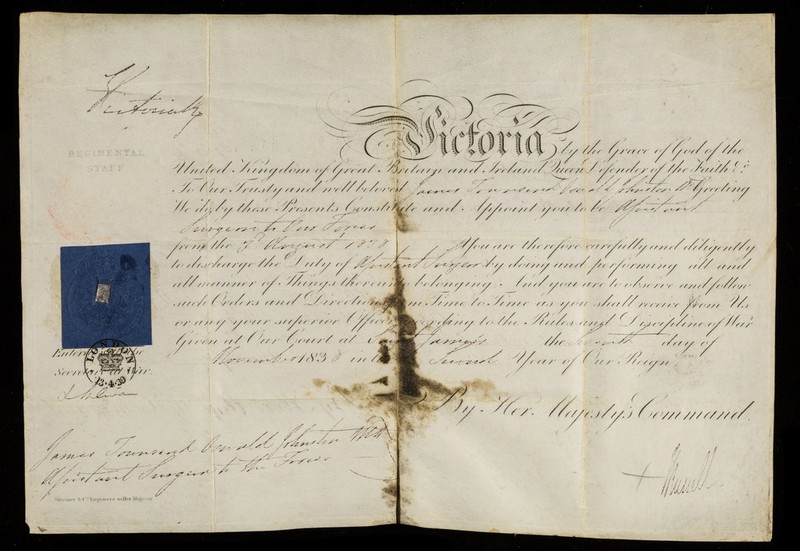 Victoria R
REGIMENTAL
STAFF
Victoria by the Grace of God of the
United Kingdom of Great Britain and Ireland Queen Defender of the Faith &c
To Our Trusty and well beloved James Townsend Oswald Johnston MD Greeting
We do by these Presents Constitute and Appoint you to be Assistant
Surgeon to Our Forces
from the August 1838 You are therefore carefully and diligently
to discharge the Duty of Assistant Surgeon by doing and performing all and
all manner of Things thereunto belonging. And you are to observe and follow
such Orders and Directions from Time to Time as you shall receive from Us
or any your superior Officer according to the Rules and Discipline of War
Given at Our Court at Saint James's the day of
November 1838 in the Second Year of Our Reign
Entered the
Secretary at War.
LONDON
13·4·39
By Her Majesty's Command.
James Townsend Oswald Johnston MD
Assistant Surgeon to the Forces
Russell
Engravers to Her Majesty